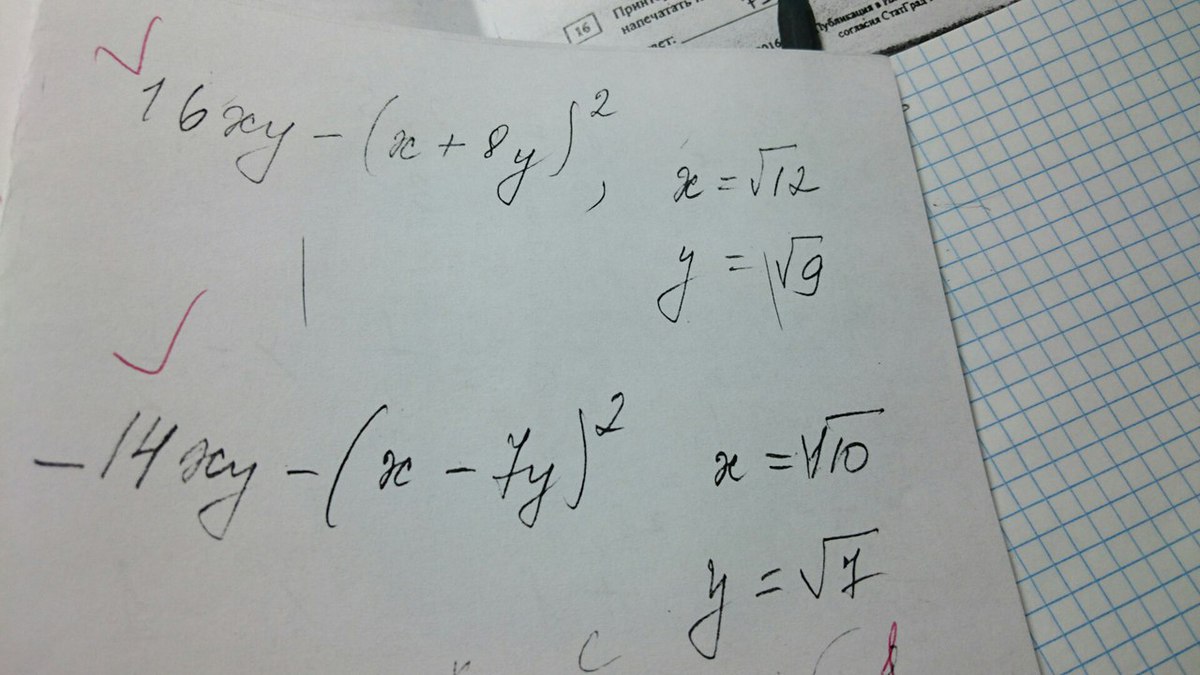 16
Принт
напечатать
ет:
Публикация в
согласия СтатГрад
16xy - (x + 8y)², x = √12
y = √9
-14xy - (x - 7y)² x = √10
y = √7